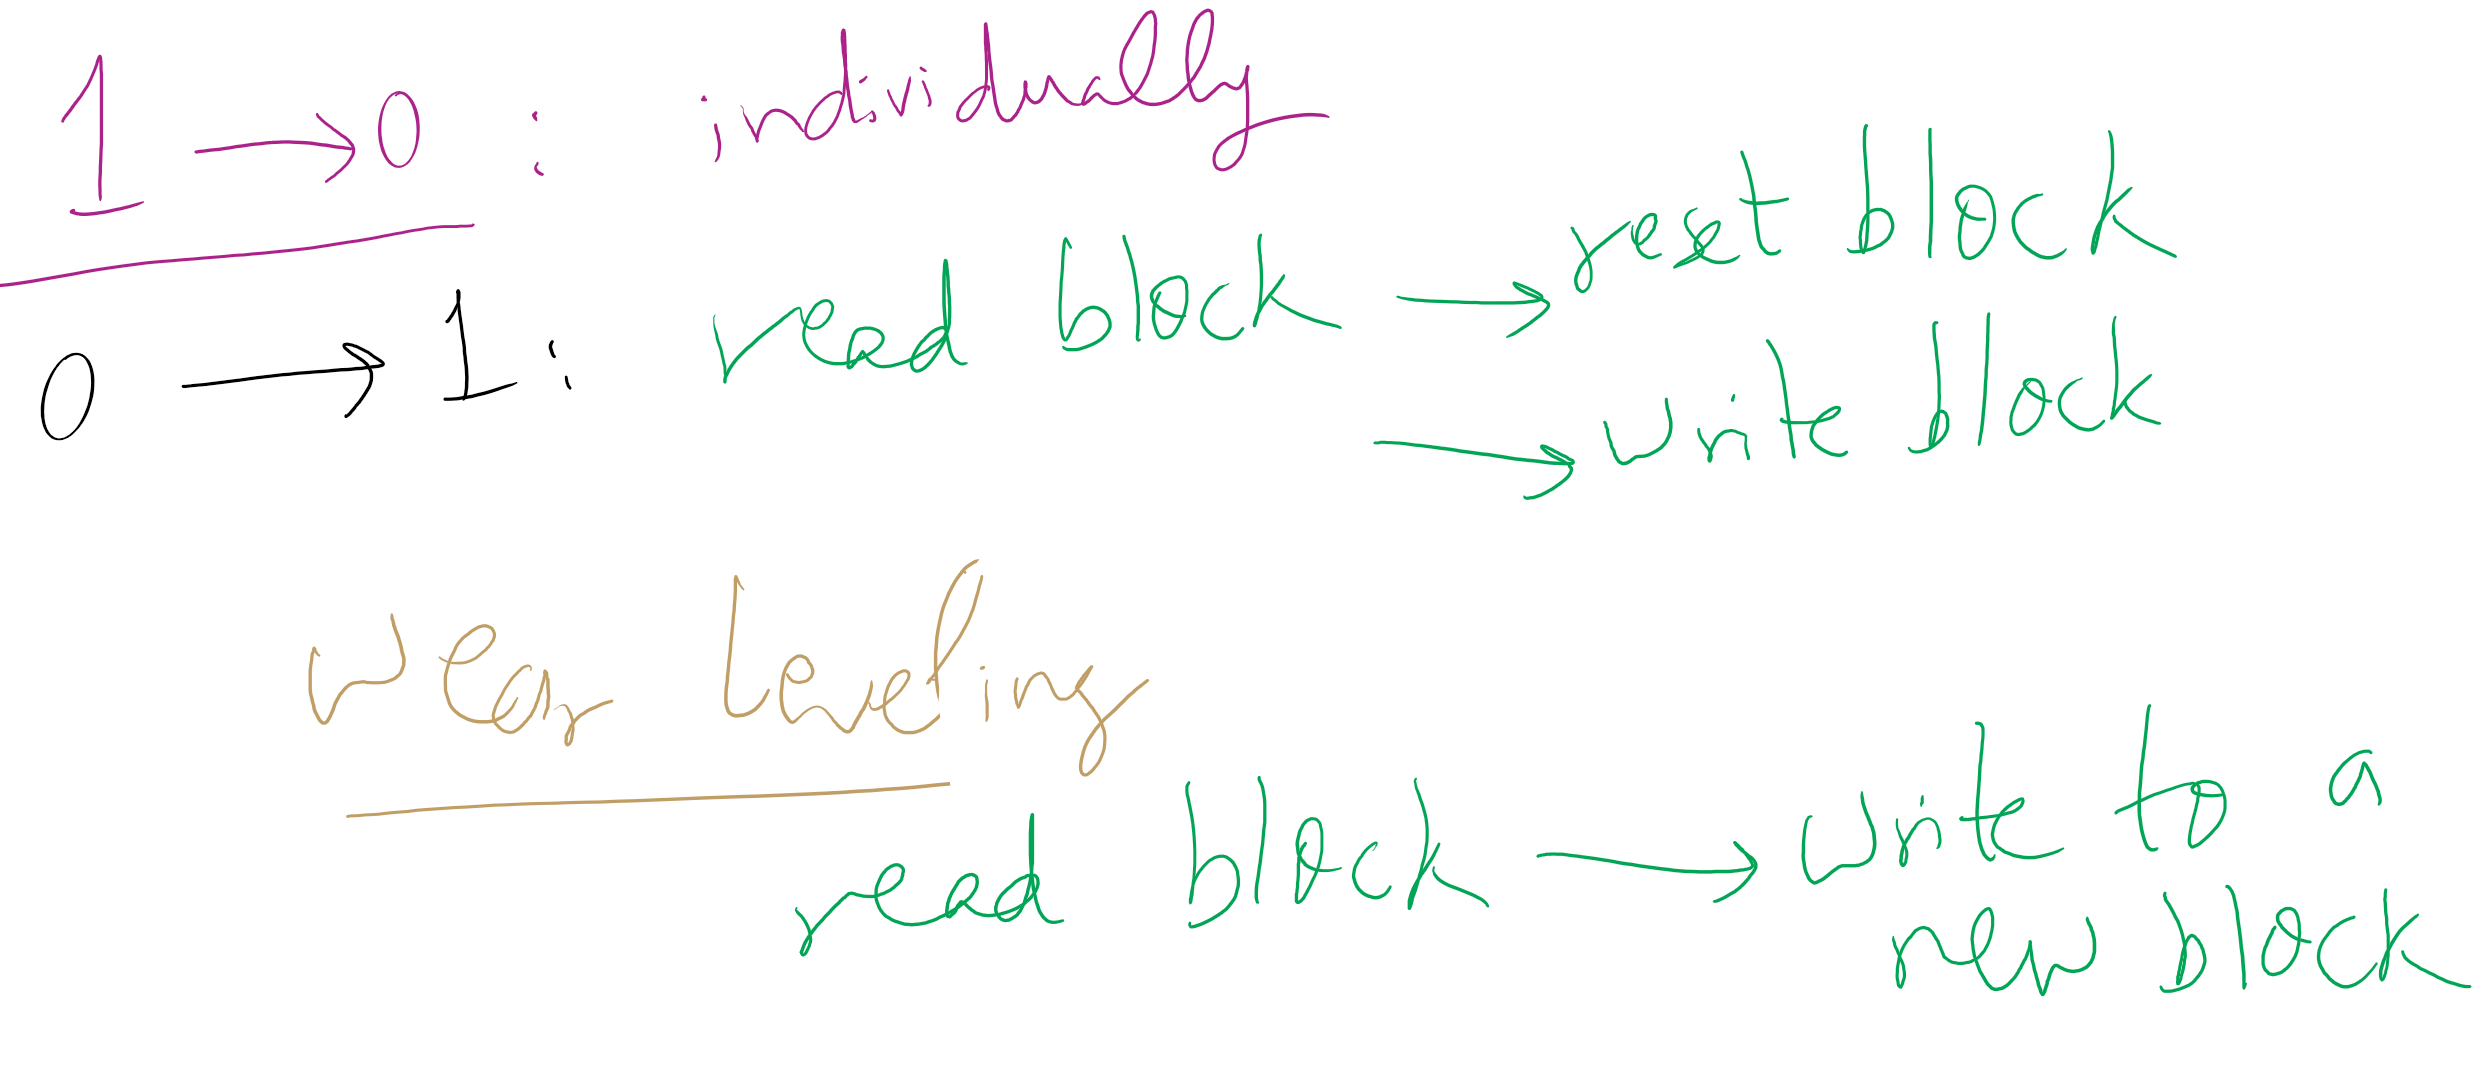 1 → 0 : individually
0 → 1 : read block → reset block
→ write block
Wear Leveling
read block → write to a
new block